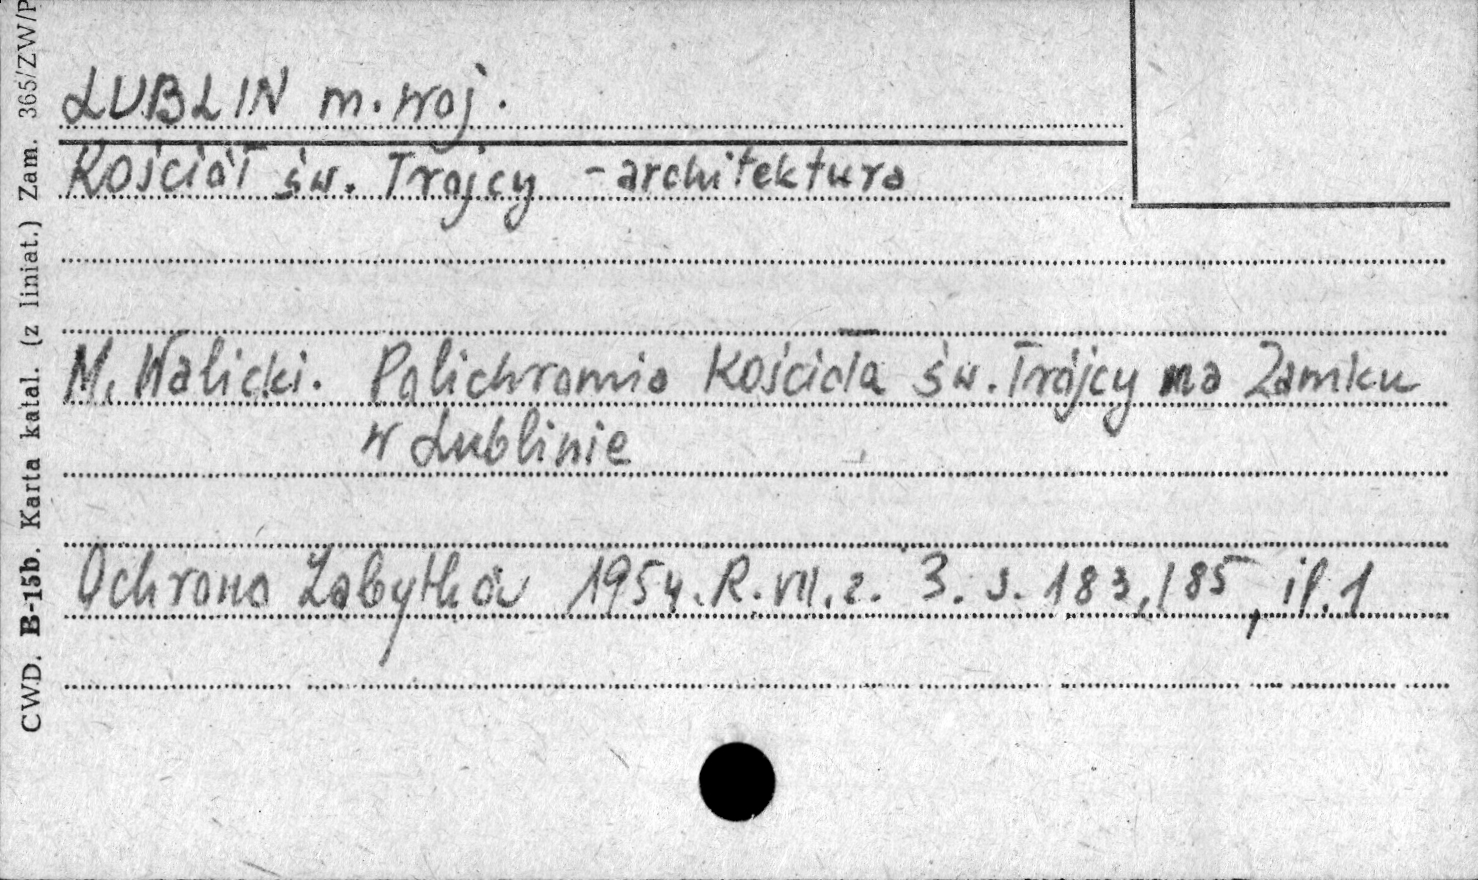 LUBLIN m. woj.
Kościół św. Trójcy - architektura
M. Walicki. Polichromia Kościoła św. Trójcy na Zamku
w Lublinie
Ochrona Zabytków 1954. R. VII. z. 3. s. 183, 185, il. 1
CWD. B-15b. Karta katal. (z liniat.) Zam. 365/ZW/P